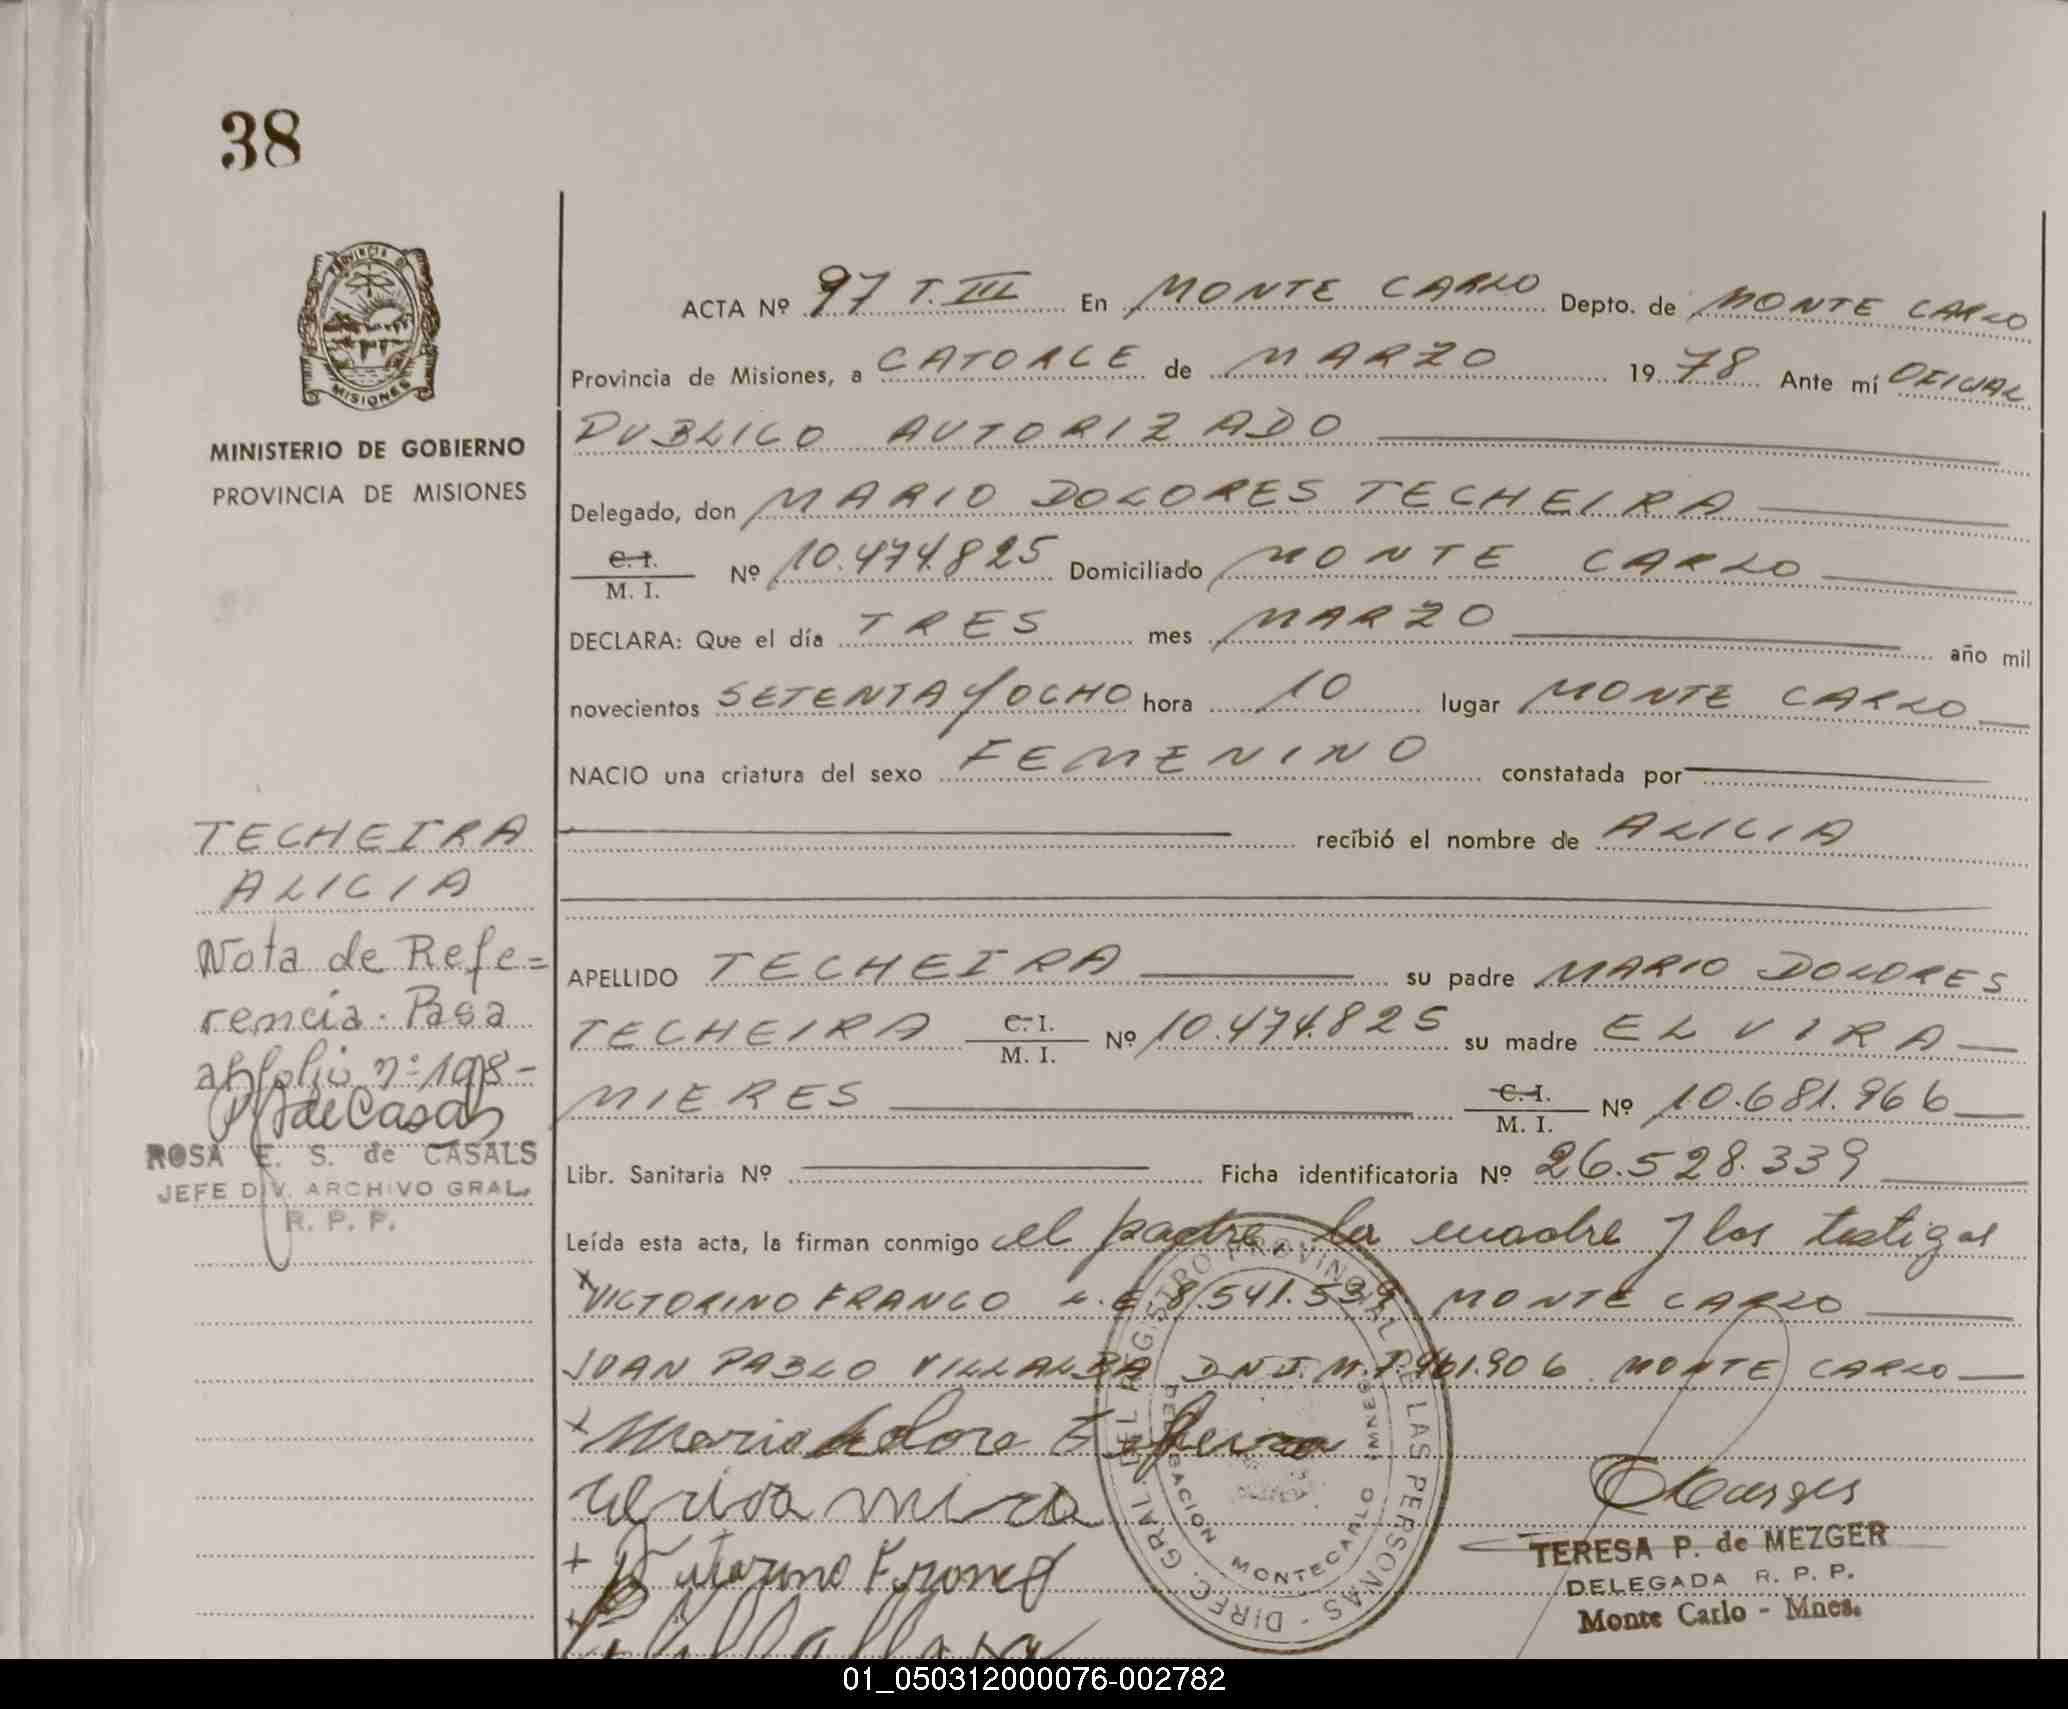 38
PROVINCIA DE
MISIONES
MINISTERIO DE GOBIERNO
PROVINCIA DE MISIONES
ACTA Nº 97 T. III En MONTE CARLO Depto. de MONTE CARLO
Provincia de Misiones, a CATORCE de MARZO 1978 Ante mí OFICIAL
PUBLICO AUTORIZADO
Delegado, don MARIO DOLORES TECHEIRA
C. I.
M. I. Nº 10.474.825 Domiciliado MONTE CARLO
DECLARA: Que el día TRES mes MARZO año mil
novecientos SETENTA Y OCHO hora 10 lugar MONTE CARLO
NACIO una criatura del sexo FEMENINO constatada por
recibió el nombre de ALICIA
APELLIDO TECHEIRA su padre MARIO DOLORES
TECHEIRA C. I. M. I. Nº 10.474.825 su madre ELVIRA
MIERES C. I. M. I. Nº 10.681.966
Libr. Sanitaria Nº Ficha identificatoria Nº 26.528.339
Leída esta acta, la firman conmigo el padre, la madre y los testigos
VICTORINO FRANCO L.E 8.541.539 MONTE CARLO
JUAN PABLO VILLALBA D.N.I. M. 901.906 MONTE CARLO
TECHEIRA
ALICIA
Nota de Refe=
rencia. Pasa
al folio nº 198-
ROSA E. S. de CASALS
JEFE DIV. ARCHIVO GRAL.
R. P. P.
DIREC. GRAL. DEL REGISTRO PROVINCIAL DE LAS PERSONAS
DELEGACION MONTECARLO MNES
TERESA P. de MEZGER
DELEGADA R. P. P.
Monte Carlo - Mnes.
01_050312000076-002782